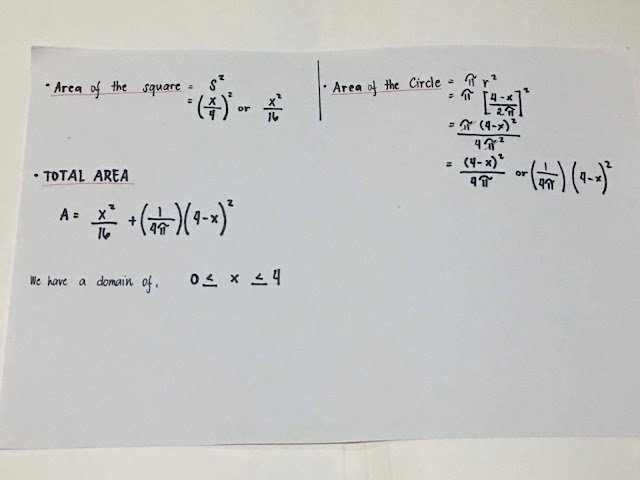 • Area of the square = S²
= (x/4)² or x²/16
• Area of the Circle = π r²
= π [4-x/2π]²
= π (4-x)²/4π²
= (4-x)²/4π or (1/4π)(4-x)²
• TOTAL AREA
A = x²/16 + (1/4π)(4-x)²
We have a domain of, 0 ≤ x ≤ 4